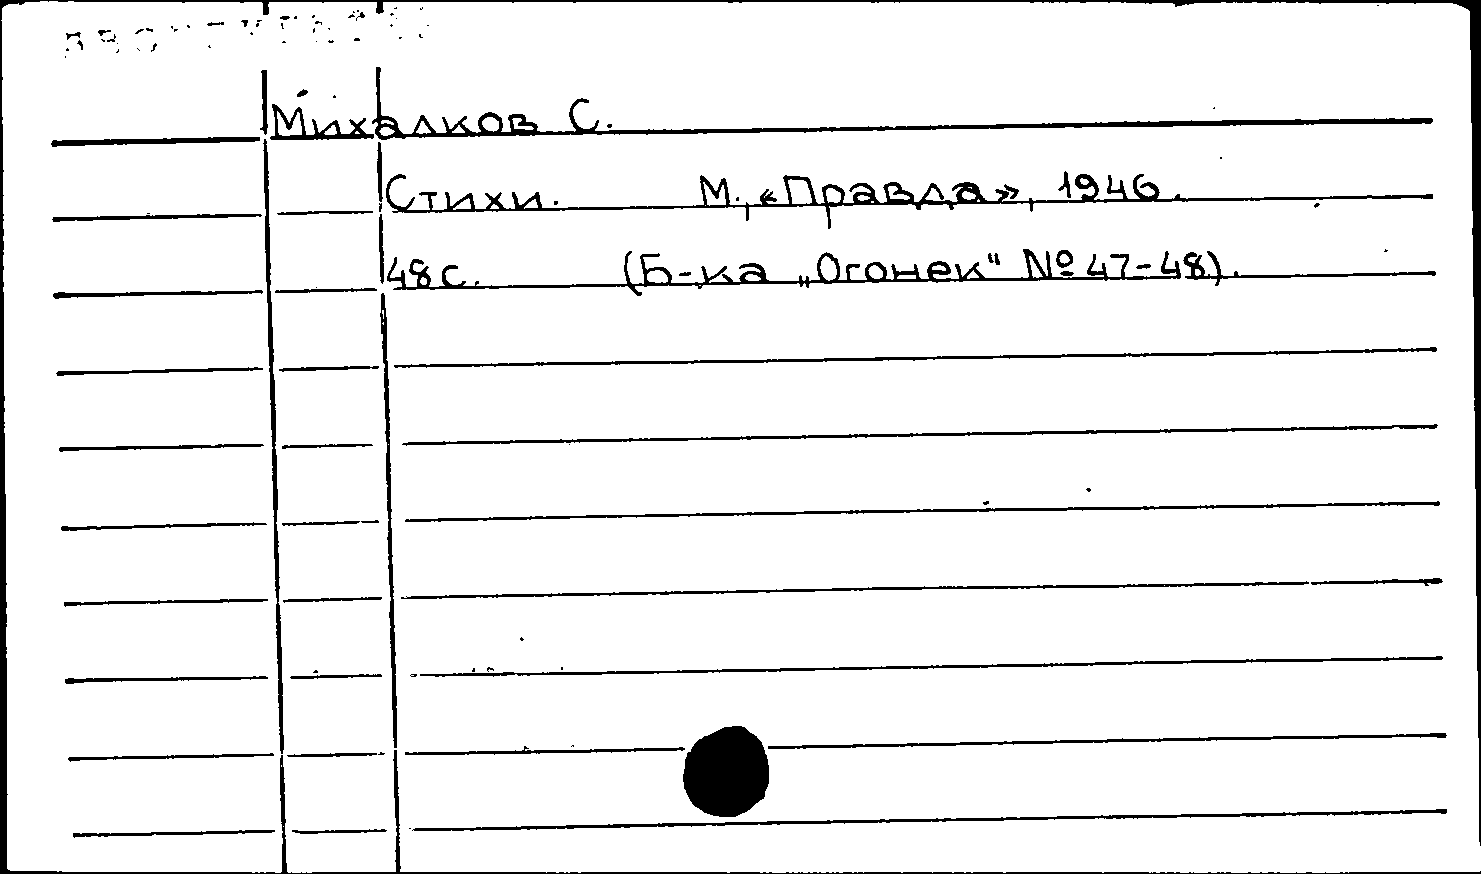 Михалков С.
Стихи. М., «Правда», 1946.
48 с. (Б-ка „Огонек“ № 47-48).